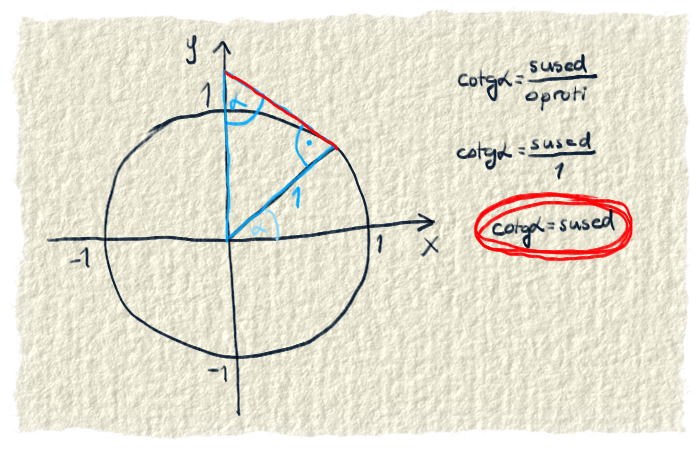 y
1
α
1
α
-1
1
x
-1
cotgα = sused
oproti
cotgα = sused
1
cotgα = sused